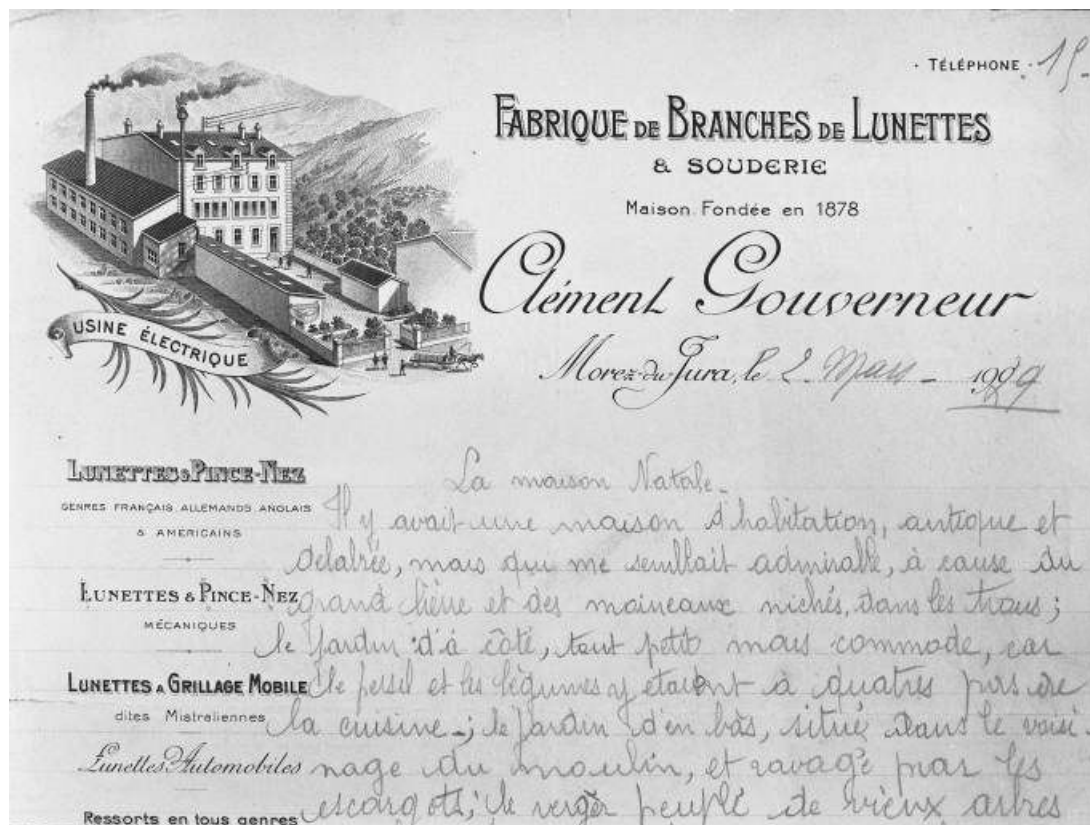 · TÉLÉPHONE · 15-
FABRIQUE DE BRANCHES DE LUNETTES
& SOUDERIE
Maison Fondée en 1878
Clément Gouverneur
Morez-du-Jura, le 2 Mars - 1929
USINE ÉLECTRIQUE
LUNETTES & PINCE-NEZ
GENRES FRANÇAIS ALLEMANDS ANGLAIS
& AMERICAINS
LUNETTES & PINCE-NEZ
MÉCANIQUES
LUNETTES A GRILLAGE MOBILE
dites Mistraliennes
Lunettes Automobiles
Ressorts en tous genres
La maison Natale.
Il y avait une maison d'habitation, antique et
delabrée, mais qui me semblait admirable, à cause du
grand lierre et des moineaux nichés, dans les trous;
le jardin d'à côté, tout petit mais commode, car
le persil et les légumes y etaient à quatres pas de
la cuisine; le jardin d'en bas, situé dans le voisi-
nage du moulin, et ravagé par les
escargots; le verger peuplé de vieux arbres